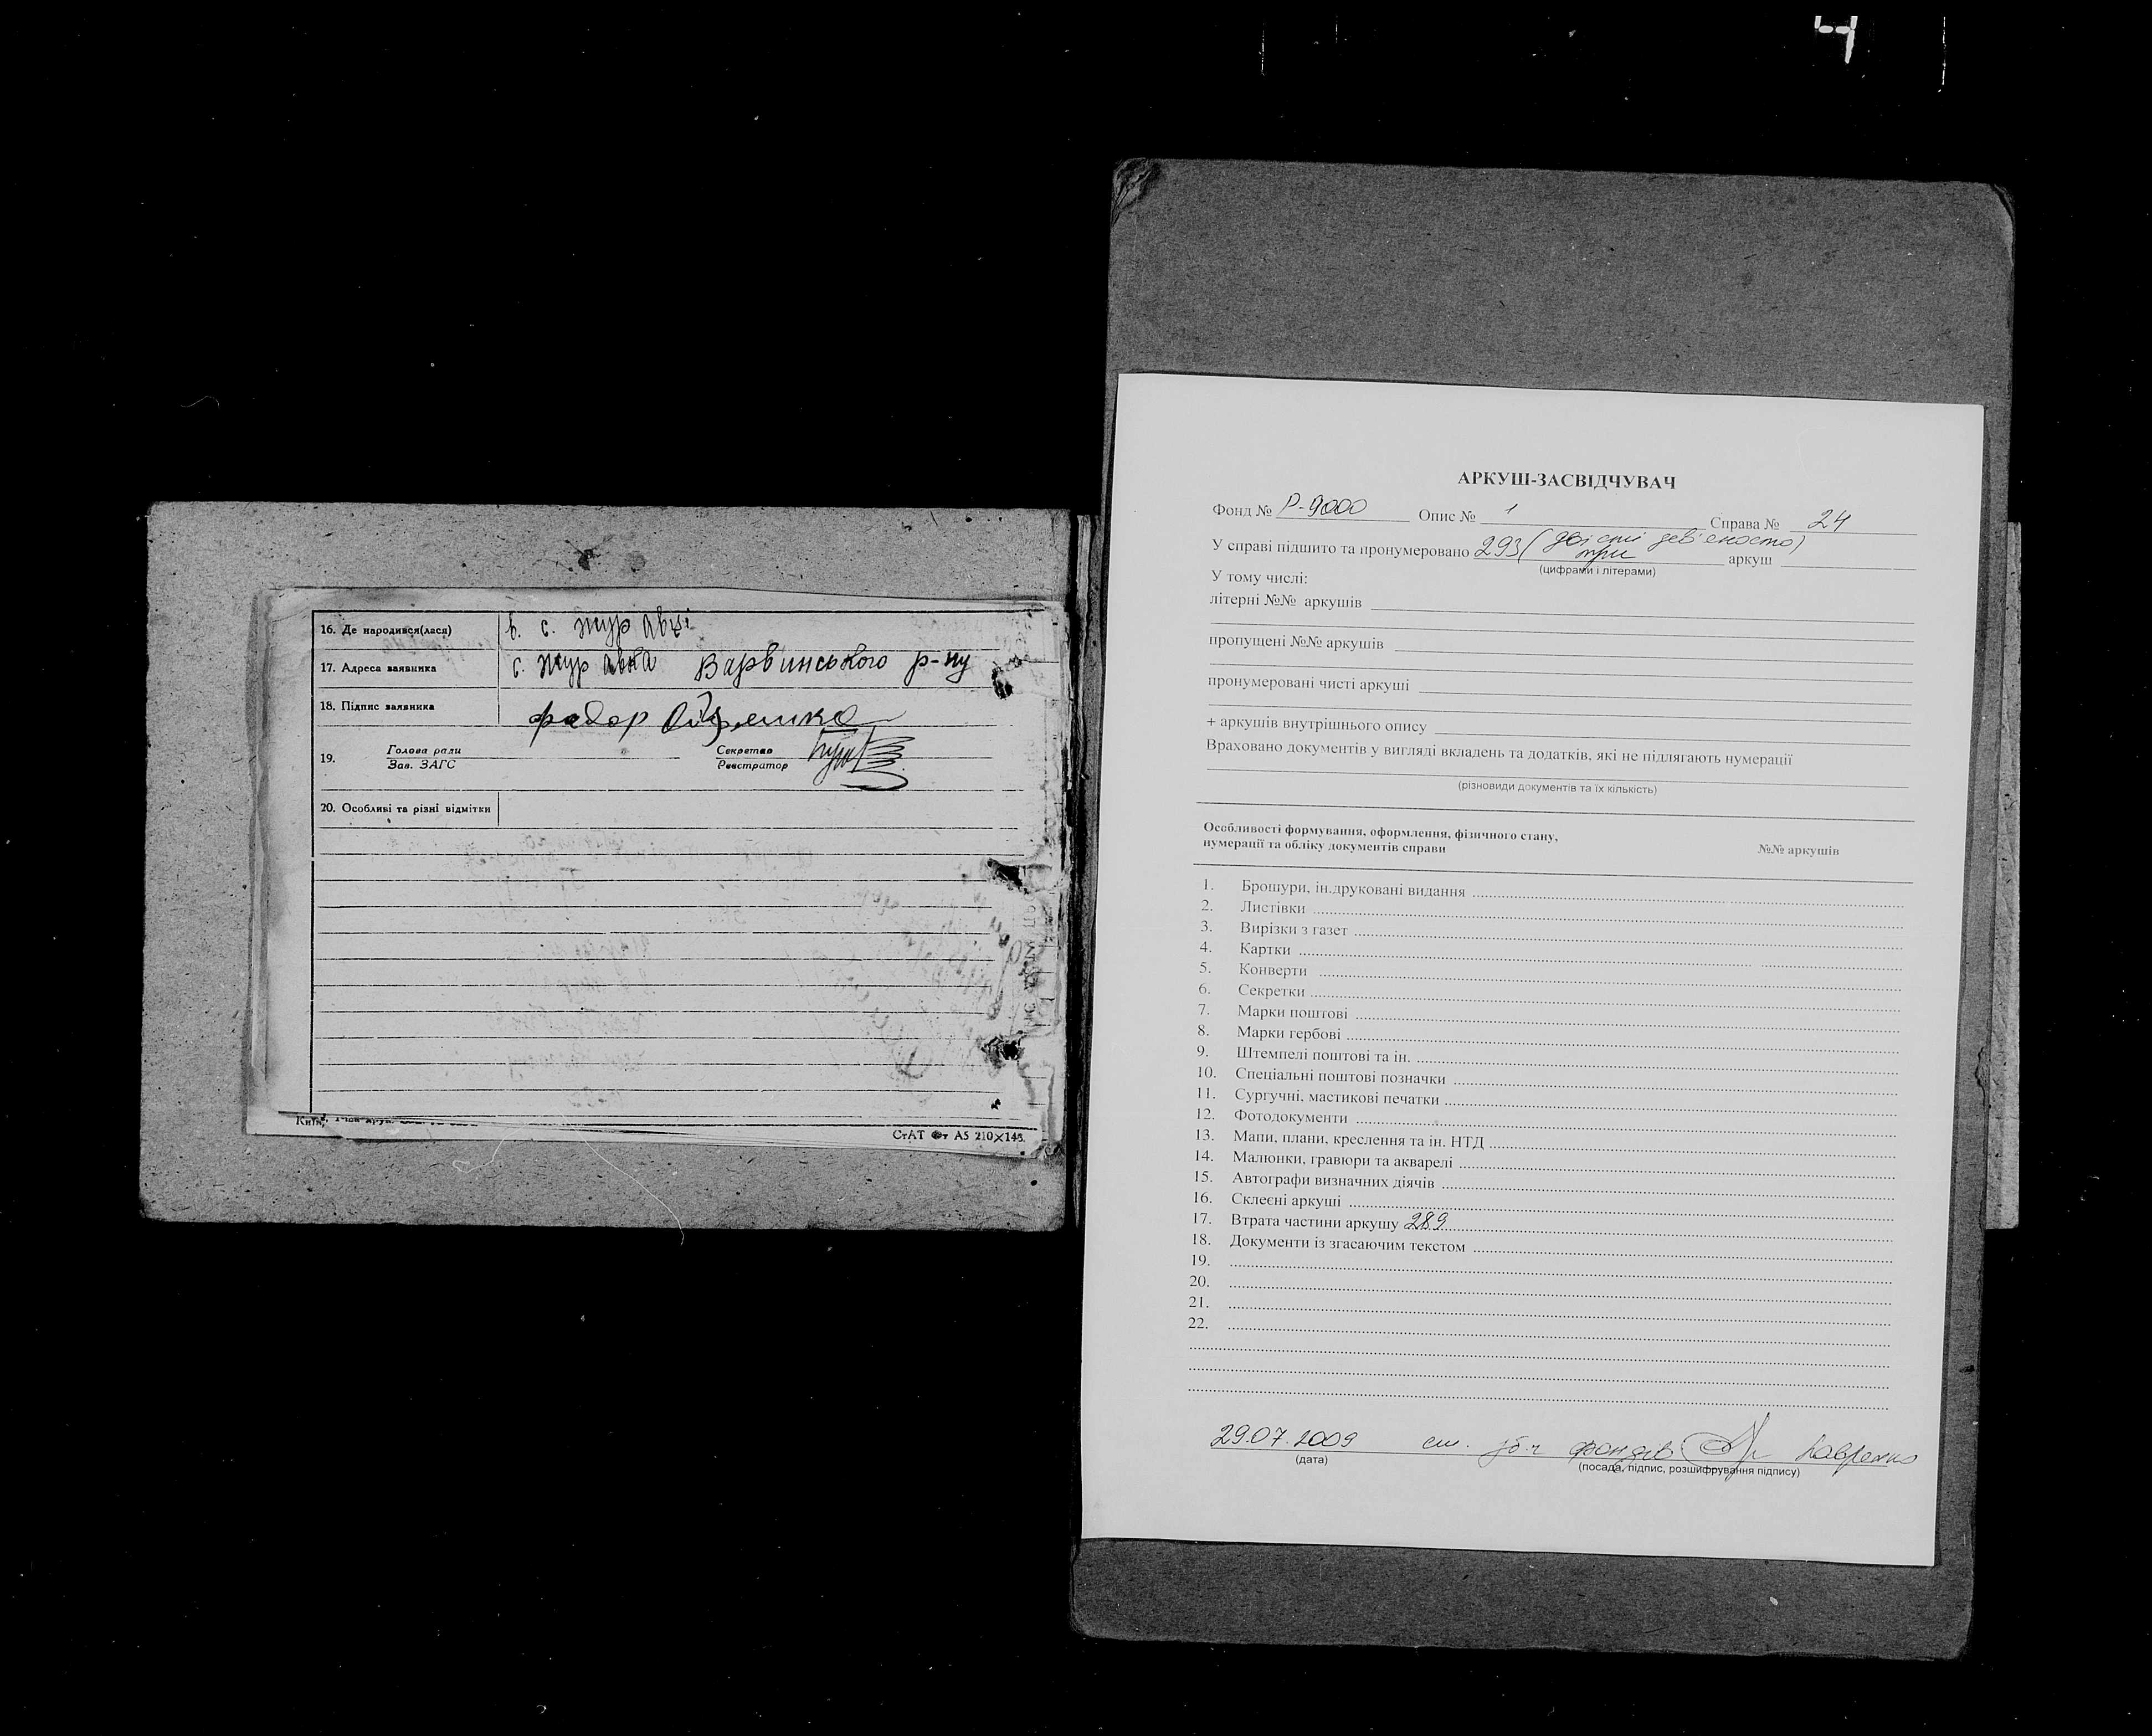 16. Де народився(лася) в. с. Журавці
17. Адреса заявника с. Журавка Варвинського р-ну
18. Підпис заявника
19. Голова ради Секретар
Зав. ЗАГС Реєстратор
20. Особливі та різні відмітки
Київ,
СтАТ Фт А5 210×148.
АРКУШ-ЗАСВІДЧУВАЧ
Фонд № Р-9000 Опис № 1 Справа № 24
У справі підшито та пронумеровано 293 (двісті дев'яносто) аркуш
три
(цифрами і літерами)
У тому числі:
літерні №№ аркушів
пропущені №№ аркушів
пронумеровані чисті аркуші
+ аркушів внутрішнього опису
Враховано документів у вигляді вкладень та додатків, які не підлягають нумерації
(різновиди документів та їх кількість)
Особливості формування, оформлення, фізичного стану,
нумерації та обліку документів справи №№ аркушів
1. Брошури, ін.друковані видання
2. Листівки
3. Вирізки з газет
4. Картки
5. Конверти
6. Секретки
7. Марки поштові
8. Марки гербові
9. Штемпелі поштові та ін.
10. Спеціальні поштові позначки
11. Сургучні, мастикові печатки
12. Фотодокументи
13. Мапи, плани, креслення та ін. НТД
14. Малюнки, гравюри та акварелі
15. Автографи визначних діячів
16. Склеєні аркуші
17. Втрата частини аркушу 289
18. Документи із згасаючим текстом
19.
20.
21.
22.
29.07.2009 ст. фондів
(дата) (посада, підпис, розшифрування підпису)